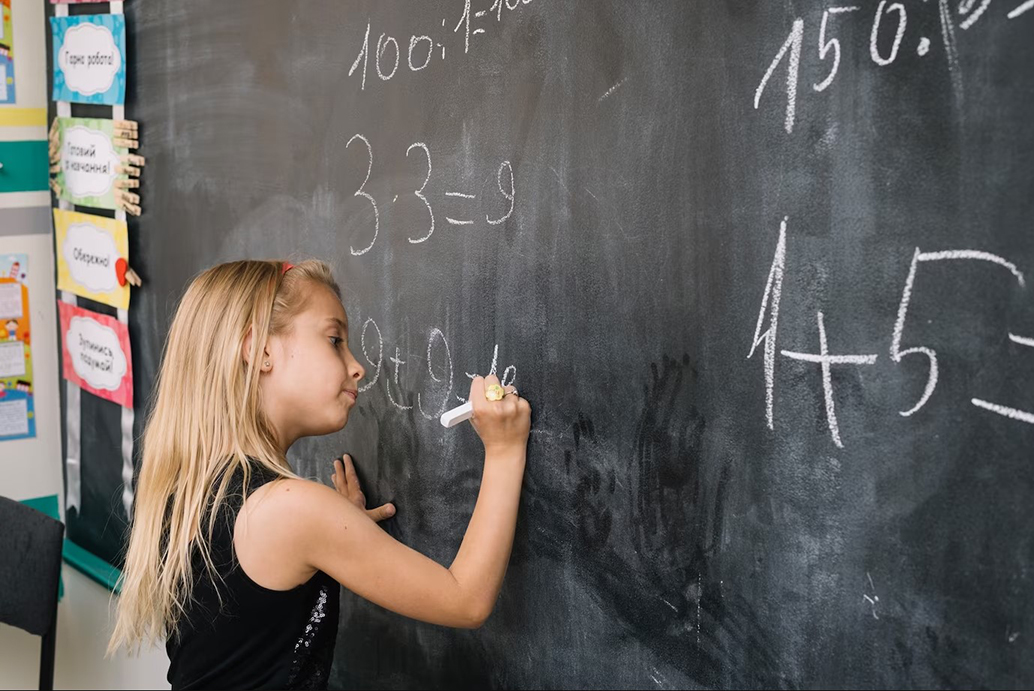 Гарна робота!
Готовий
до навчання!
Обережно!
Зупинись,
подумай!
100:1=100
3·3=9
9+9=18
150:
1+5=